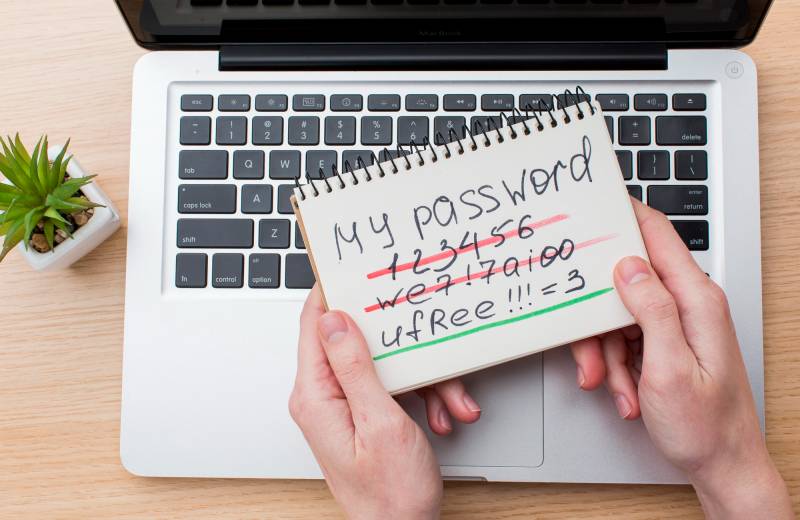 MacBook
esc
! @ # $ % ^ & +
1 2 3 4 5 6 = delete
tab Q W E } |
] \
caps lock A enter
return
shift Z shift
alt
fn control option
My password
123456
we7!7aioo
ufRee!!!=3